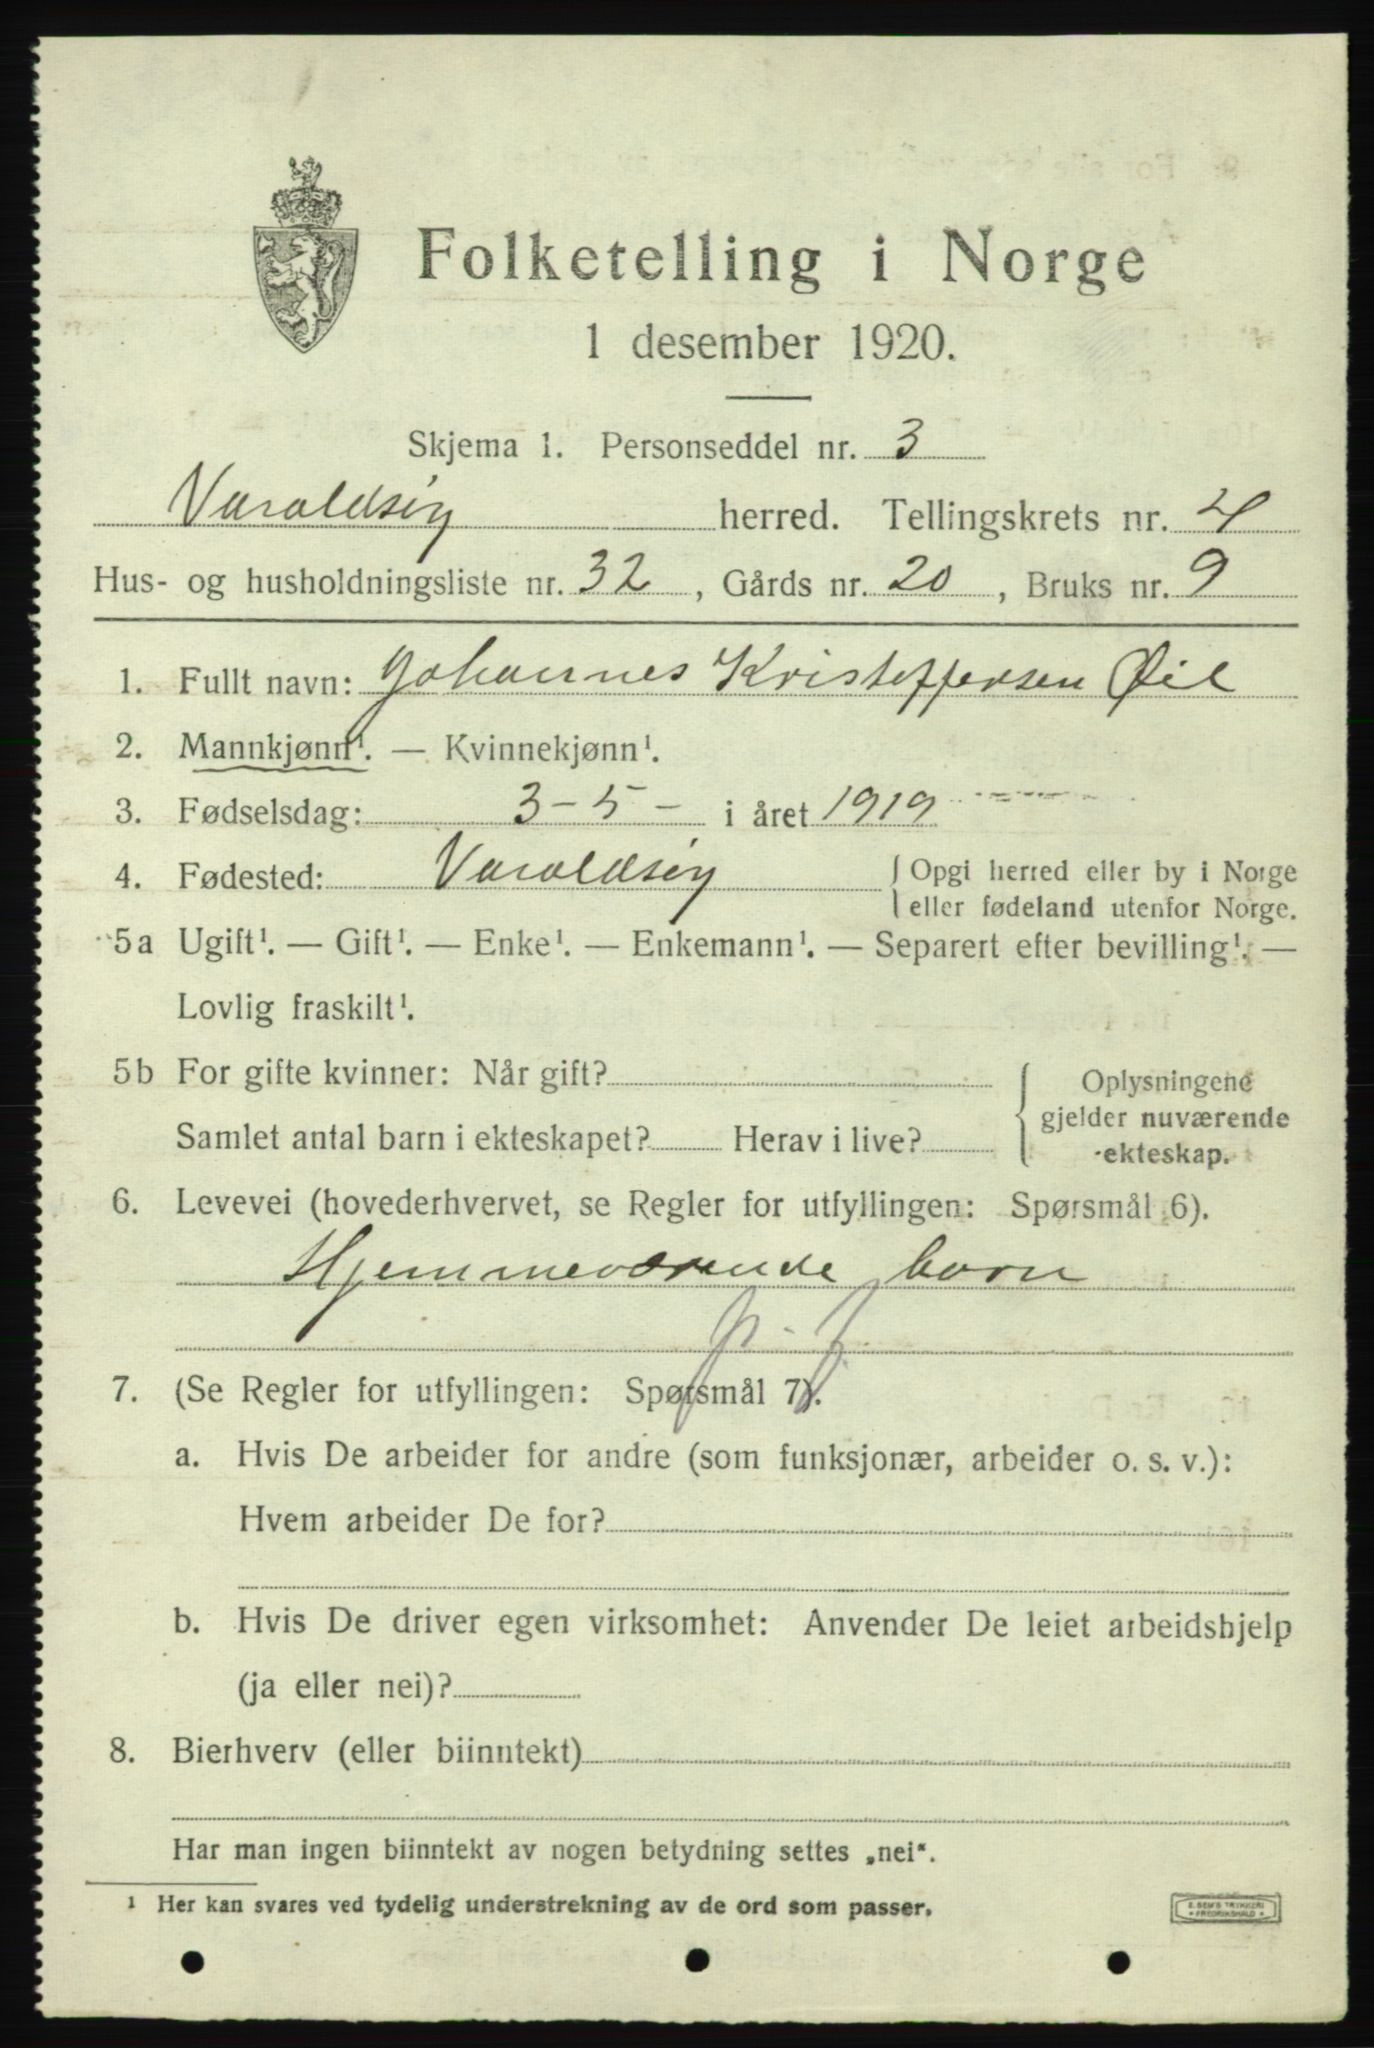 Folketelling i Norge
1 desember 1920.
Skjema 1. Personseddel nr. 3
Varaldsøy herred. Tellingskrets nr. 4
Hus- og husholdningsliste nr. 32, Gårds nr. 20, Bruks nr. 9
1. Fullt navn: Johannes Kristoffersen Øie
2. Mannkjønn¹. — Kvinnekjønn¹.
3. Fødselsdag: 3 – 5 – i året 1919
4. Fødested: Varaldsøy { Opgi herred eller by i Norge
eller fødeland utenfor Norge.
5a Ugift¹. — Gift¹. — Enke¹. — Enkemann¹. — Separert efter bevilling¹. —
Lovlig fraskilt¹.
5b For gifte kvinner: Når gift?
Samlet antal barn i ekteskapet? Herav i live?
{ Oplysningene
gjelder nuværende
ekteskap.
6. Levevei (hovederhvervet, se Regler for utfyllingen: Spørsmål 6).
Hjemmeværende barn
7. (Se Regler for utfyllingen: Spørsmål 7).
a. Hvis De arbeider for andre (som funksjonær, arbeider o. s. v.):
Hvem arbeider De for?
b. Hvis De driver egen virksomhet: Anvender De leiet arbeidshjelp
(ja eller nei)?
8. Bierhverv (eller biinntekt)
Har man ingen biinntekt av nogen betydning settes „nei“.
¹ Her kan svares ved tydelig understrekning av de ord som passer.
E. SEM'S TRYKKERI
* FREDRIKSHALD *